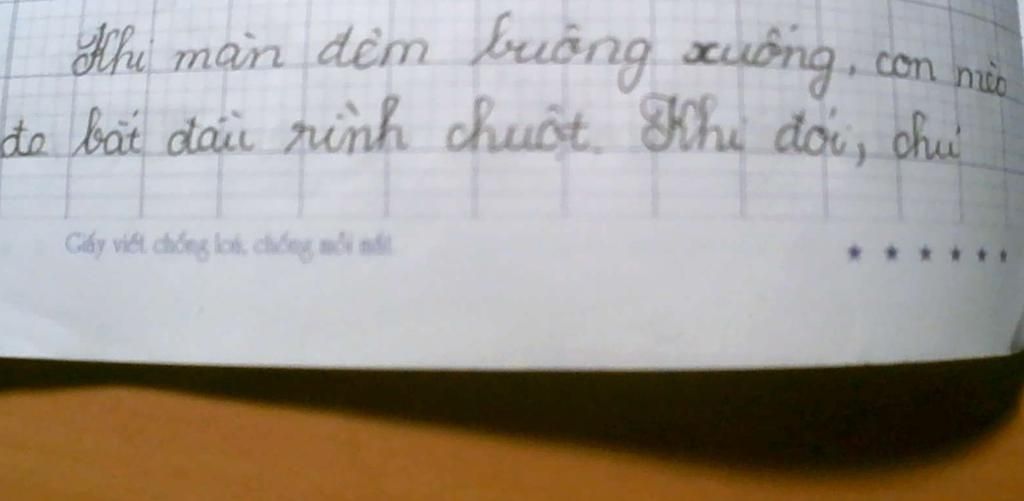 Khi màn đêm buông xuống, con mèo
đo bắt đầu rình chuột. Khi đói, chú
Giấy viết chống loá, chống mỏi mắt